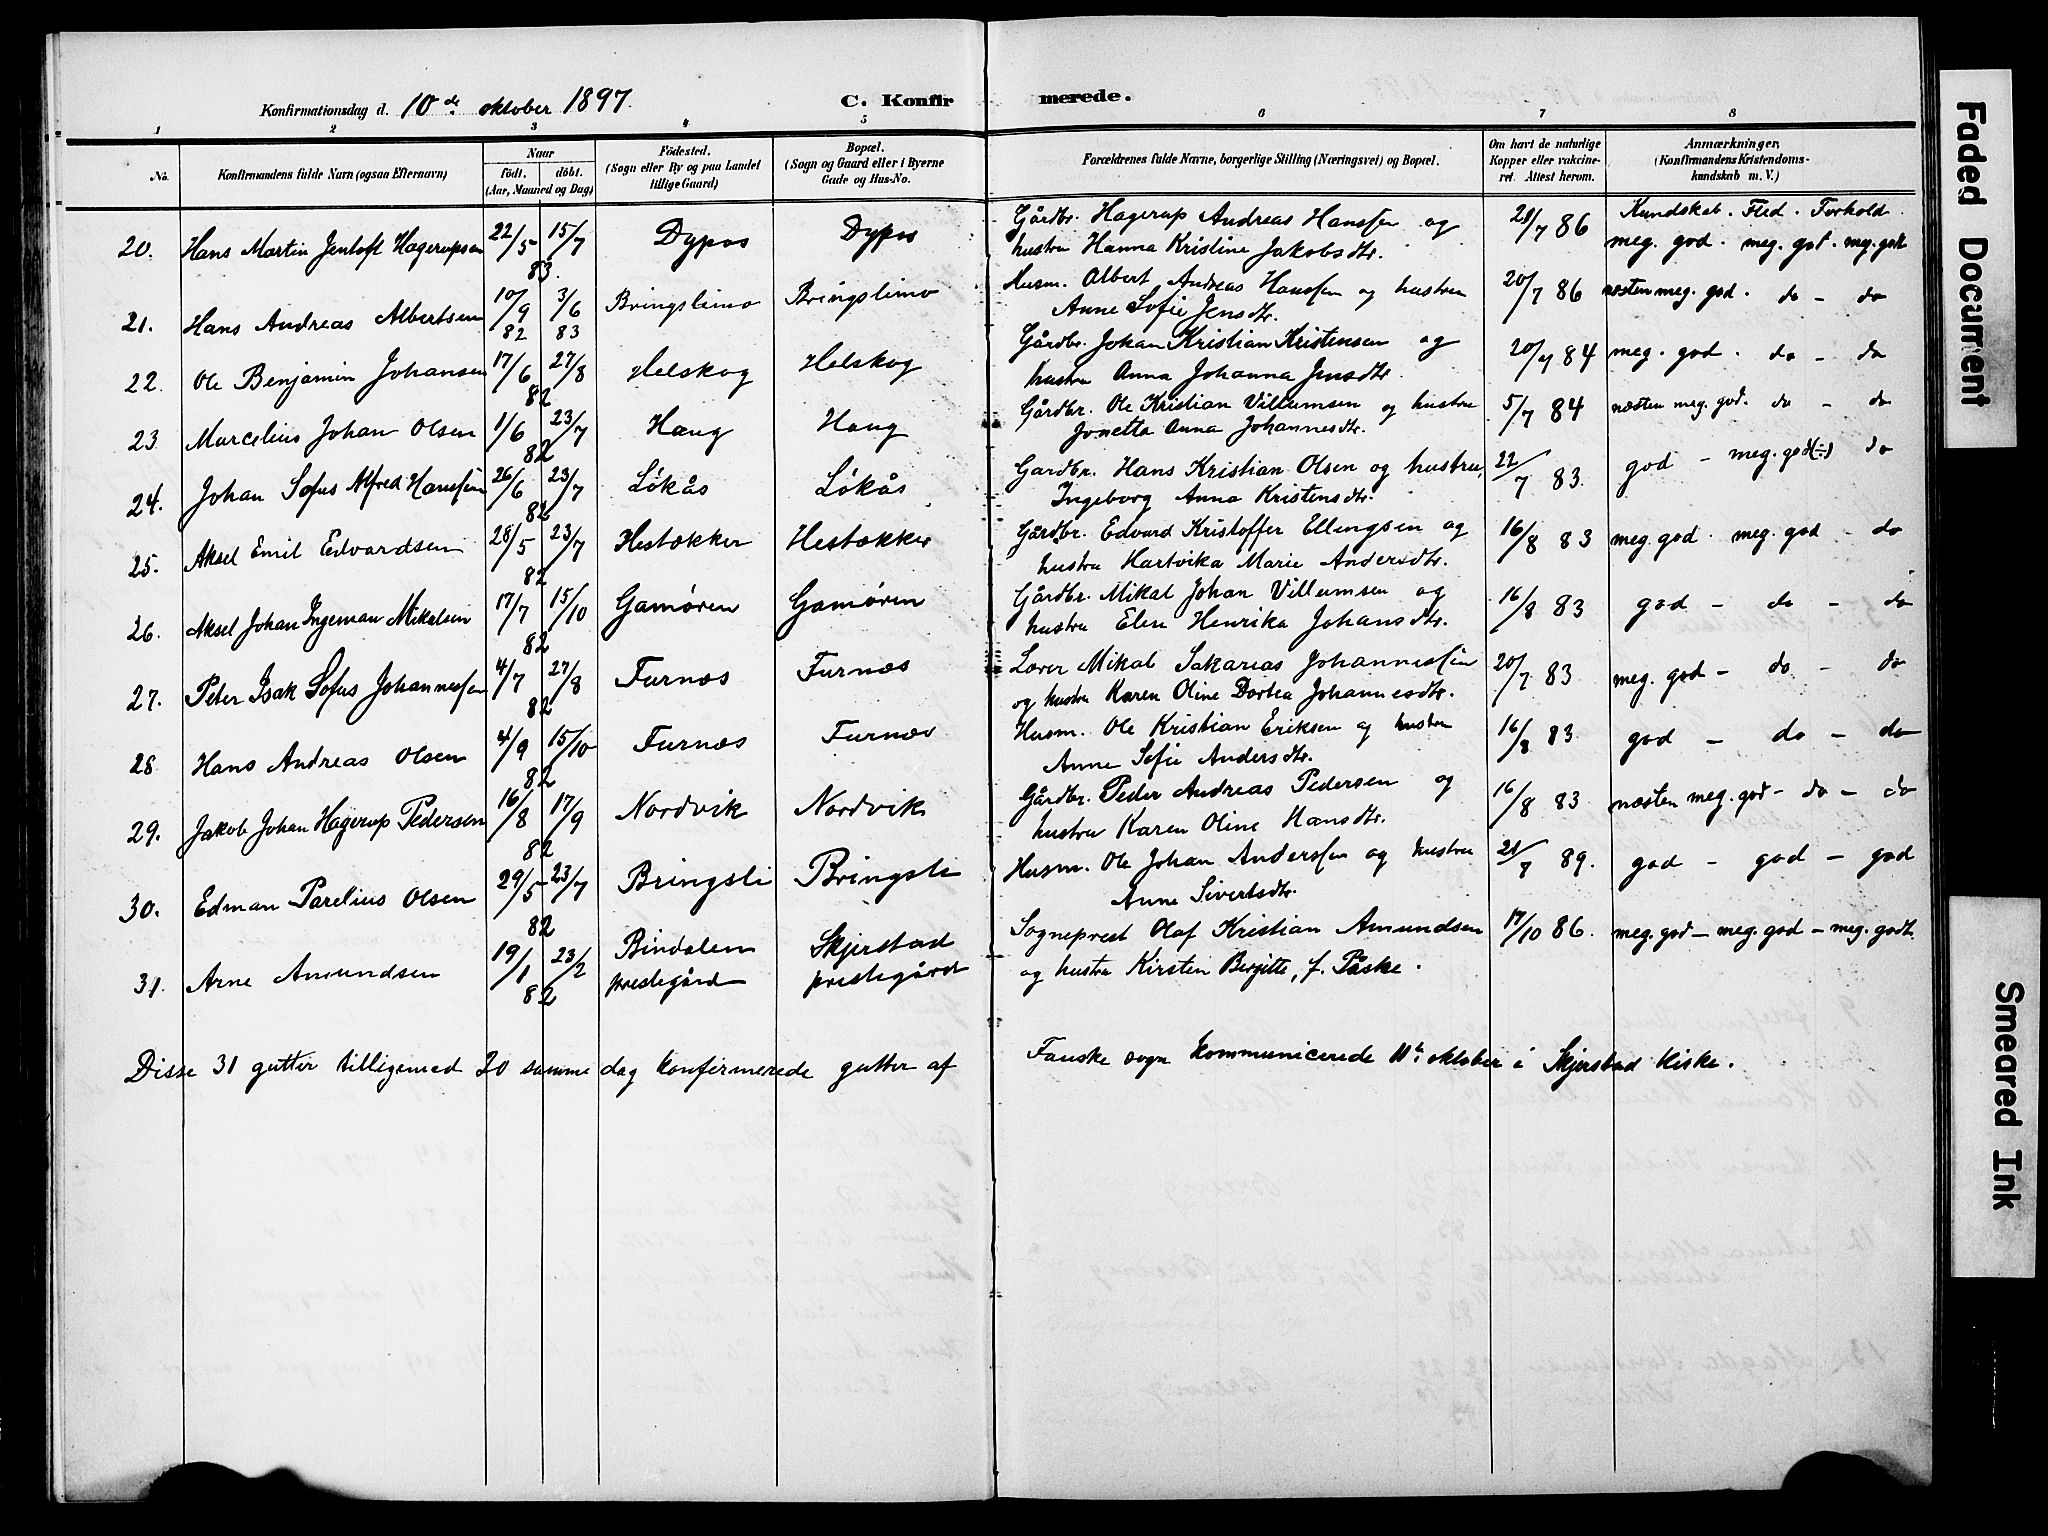 Konfirmationsdag d. 10de oktober 1897. C. Konfir merede.
1 2 3 4 5 6 7 8
No. Konfirmandens fulde Navn (ogsaa Efternavn) Naar født. døbt. (Aar, Maaned og Dag) Fødested. (Sogn eller By og paa Landet tillige Gaard) Bopæl. (Sogn og Gaard eller i Byerne Gade og Hus-No. Forældrenes fulde Navne, borgerlige Stilling (Næringsvei) og Bopæl. Om havt de naturlige Kopper eller vakcineret. Attest herom. Anmærkninger, (Konfirmandens Kristendomskundskab m. V.)
Kundskab. Flid. Forhold
20. Hans Martin Jentoft Hagerupsen 22/5 15/7 83. Dypos Dypos Gårdbr. Hagerup Andreas Hanssen og 21/7 86 meg. god. meg. god. meg. godt
hustru Hanna Kristine Jakobsdtr.
21. Hans Andreas Albertsen 10/9 82 3/6 83 Bringslimo Bringslimo Husm. Albert Andreas Hanssen og hustru 20/7 86 næsten meg. god. do - do
Anne Sofie Jensdtr.
22. Ole Benjamin Johansen 17/6 27/8 82 Helskog Helskog Gårdbr. Johan Kristian Kristensen og 20/7 84 meg. god. do - do
hustru Anna Johanna Jensdtr.
23 Marcelius Johan Olsen 1/6 23/7 82 Haug Haug Gårdbr. Ole Kristian Villumsen og hustru 5/7 84 næsten meg. god. do - do
Jonetta Anna Johannesdtr.
24. Johan Sofus Alfred Hanssen 26/6 23/7 82 Løkås Løkås Gardbr. Hans Kristian Olsen og hustru, 22/7 83. god - meg. god(÷) do
Ingeborg Anna Kristensdtr.
25. Aksel Emil Edvardsen 28/5 23/7 82 Hestækker Hestækker Gårdbr. Edvard Kristoffer Ellingsen og 16/8 83 meg. god. meg. god - do
hustru Hartvika Marie Andersdtr.
26. Aksel Johan Ingeman Mikalsen 17/7 15/10 82 Gamøren Gamøren Gårdbr. Mikal Johan Villumsen og 16/8 83 god - do - do
hustru Elen Henrika Johansdtr.
27. Peter Isak Sofus Johannessen 4/7 27/8 82 Furnes Furnes Lærer Mikal Sakarias Johannessen 20/7 83 meg. god - do - do
og hustru Karen Oline Dortea Johannesdtr.
28 Hans Andreas Olsen 4/9 15/10 82 Furnes Furnes Husm. Ole Kristian Eriksen og hustru 16/8 83 god - do - do
Anne Sofie Andersdtr.
29. Jakob Johan Hagerup Pedersen 16/8 17/9 82 Nordvik Nordvik Gårdbr. Peder Andreas Pedersen og 16/8 83 næsten meg. god - do - do
hustru Karen Oline Hansdtr.
30. Edman Parelius Olsen 29/5 23/7 82 Bringsli Bringsli Husm. Ole Johan Anderssen og hustru 21/7 89. god - god - god
Anne Sivertsdtr.
31. Arne Amundsen 19/1 23/2 82 Bindalen prestegård Skjerstad prestegård Sogneprest Olaf Kristian Amundsen 17/10 86. meg. god - meg. god - meg. godt.
og hustru Kirsten Bergitte, f. Påske.
Disse 31 gutter tilligemed 20 samme dag konfirmerede gutter af Fauske sogn kommunicerede 11te oktober i Skjerstad kirke.
Faded Document
Smeared Ink